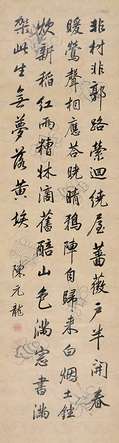 非村非郭路縈迴繞屋薔薇戶半開春
暖鶯聲相應答晚晴鴉陣自歸來白烟土銼
炊新稻紅雨糟牀滴舊醅山色滿窓書滿
架此生無夢落黃埃
陳元龍